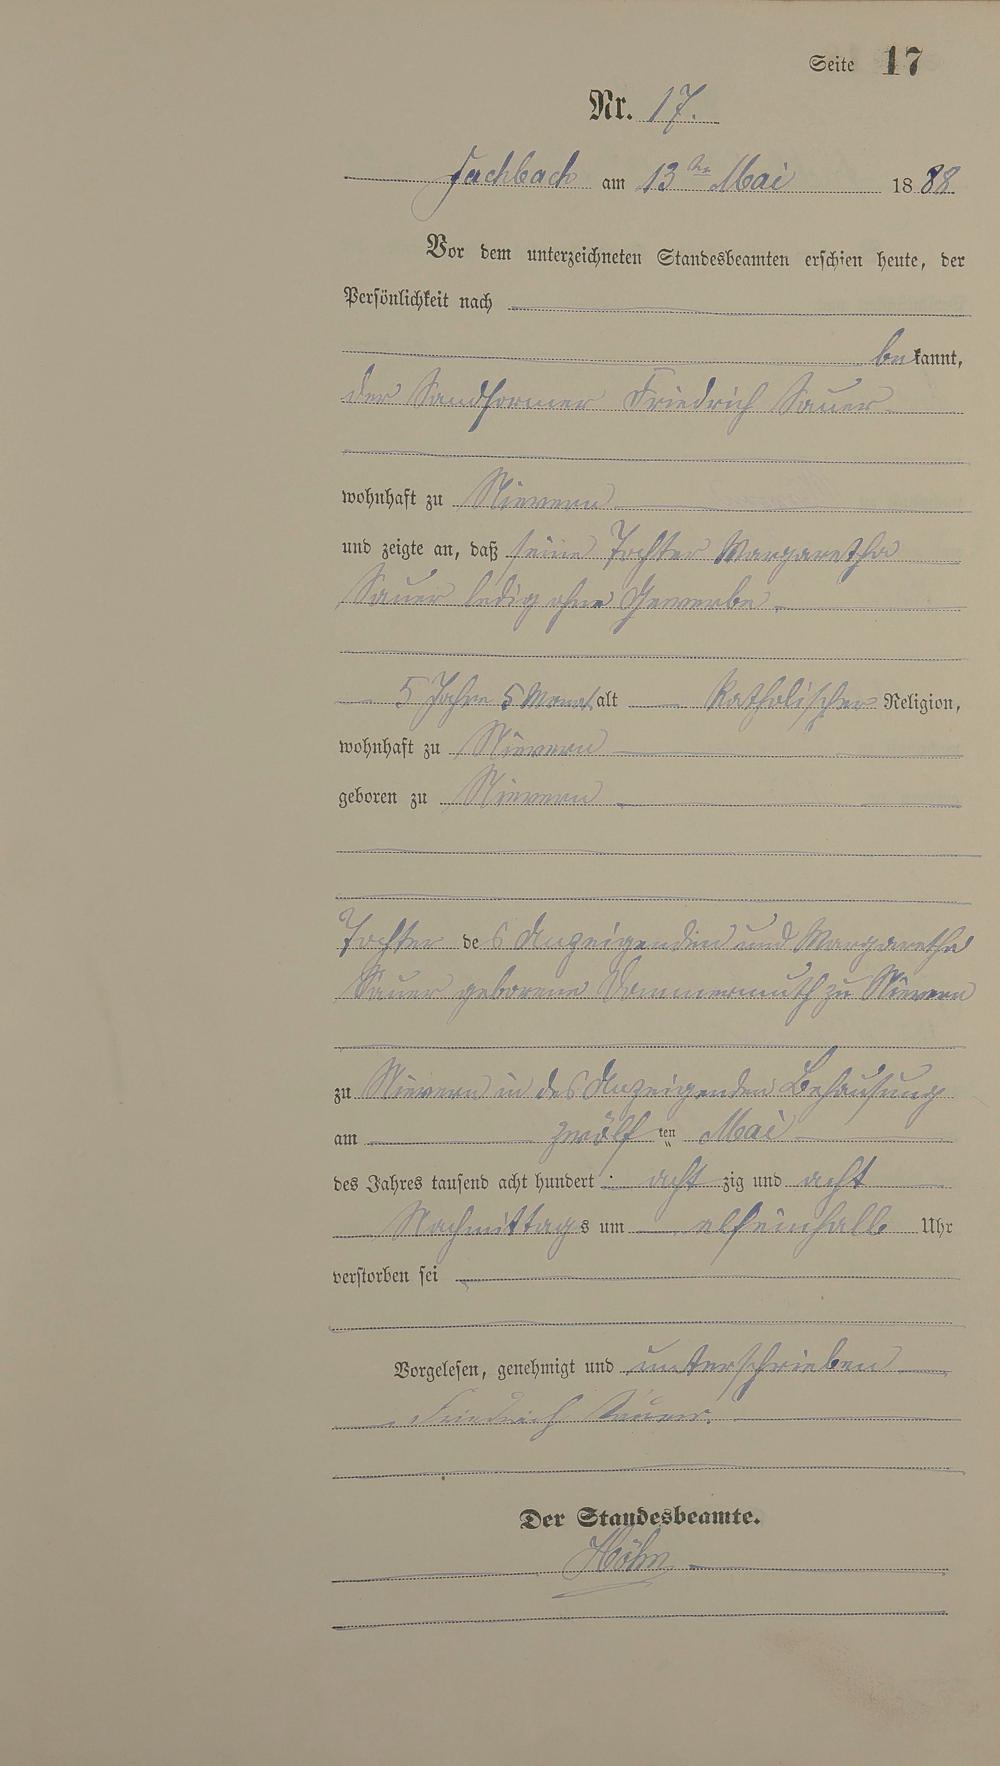 Seite 17
Nr. 17.
Fachbach am 13ten Mai 1888
Vor dem unterzeichneten Standesbeamten erschien heute, der
Persönlichkeit nach
bekannt,
der Sandformer Friedrich Sauer
wohnhaft zu Nievern
und zeigte an, daß seine Tochter Margaretha
Sauer ledig ohne Gewerbe
5 Jahre 5 Monat alt Katholischer Religion,
wohnhaft zu Nievern
geboren zu Nievern
Tochter des Anzeigenden und Margaretha
Sauer geborene Dommermuth zu Nievern
zu Nievern in des Anzeigenden Behausung
am zwölf ten Mai
des Jahres tausend acht hundert acht zig und acht
Nachmittags um elfeinhalb Uhr
verstorben sei
Vorgelesen, genehmigt und unterschrieben
Friedrich Sauer.
Der Standesbeamte.
Höhn